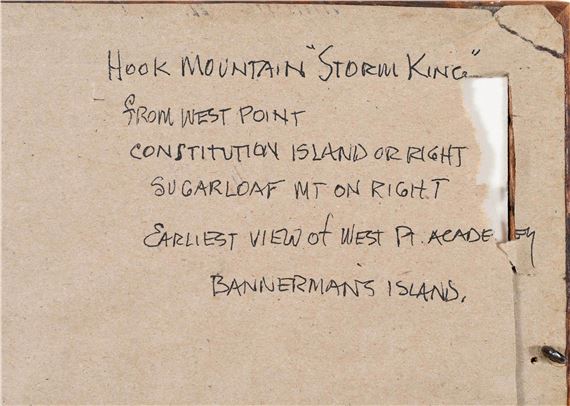 HOOK MOUNTAIN "STORM KING"
FROM WEST POINT
CONSTITUTION ISLAND OR RIGHT
SUGARLOAF MT ON RIGHT
EARLIEST VIEW of WEST Pt. ACADE EY
BANNERMAN'S ISLAND.